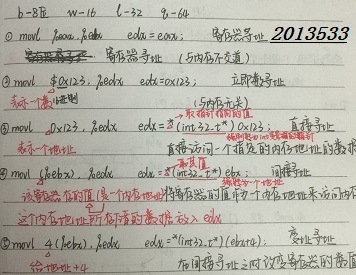 b-8位 w-16 l-32 q-64
① movl %eax, %edx edx=eax; 寄存器寻址 2013533
寄存器寻址 (与内存不交道)
② movl $0x123, %edx edx=0x123; 立即数寻址
表示一个数 (与内存无关)
取指针指向的值
③ movl 0x123, %edx edx=*(int32_t*)0x123; 直接寻址
表示一个地址 直接访问一个指定的内存地址的数据
取其值
④ movl (%ebx), %edx edx=*(int32_t*)ebx; 间接寻址
该寄存器存的值是一个内存地址 将寄存器的值作为一个内存地址来访问内存
这个内存地址所存储的数据放入edx
⑤ movl 4(%ebx), %edx edx=*(int32_t*)(ebx+4); 变址寻址
给地址+4 在间接寻址之时改变寄存器的基值